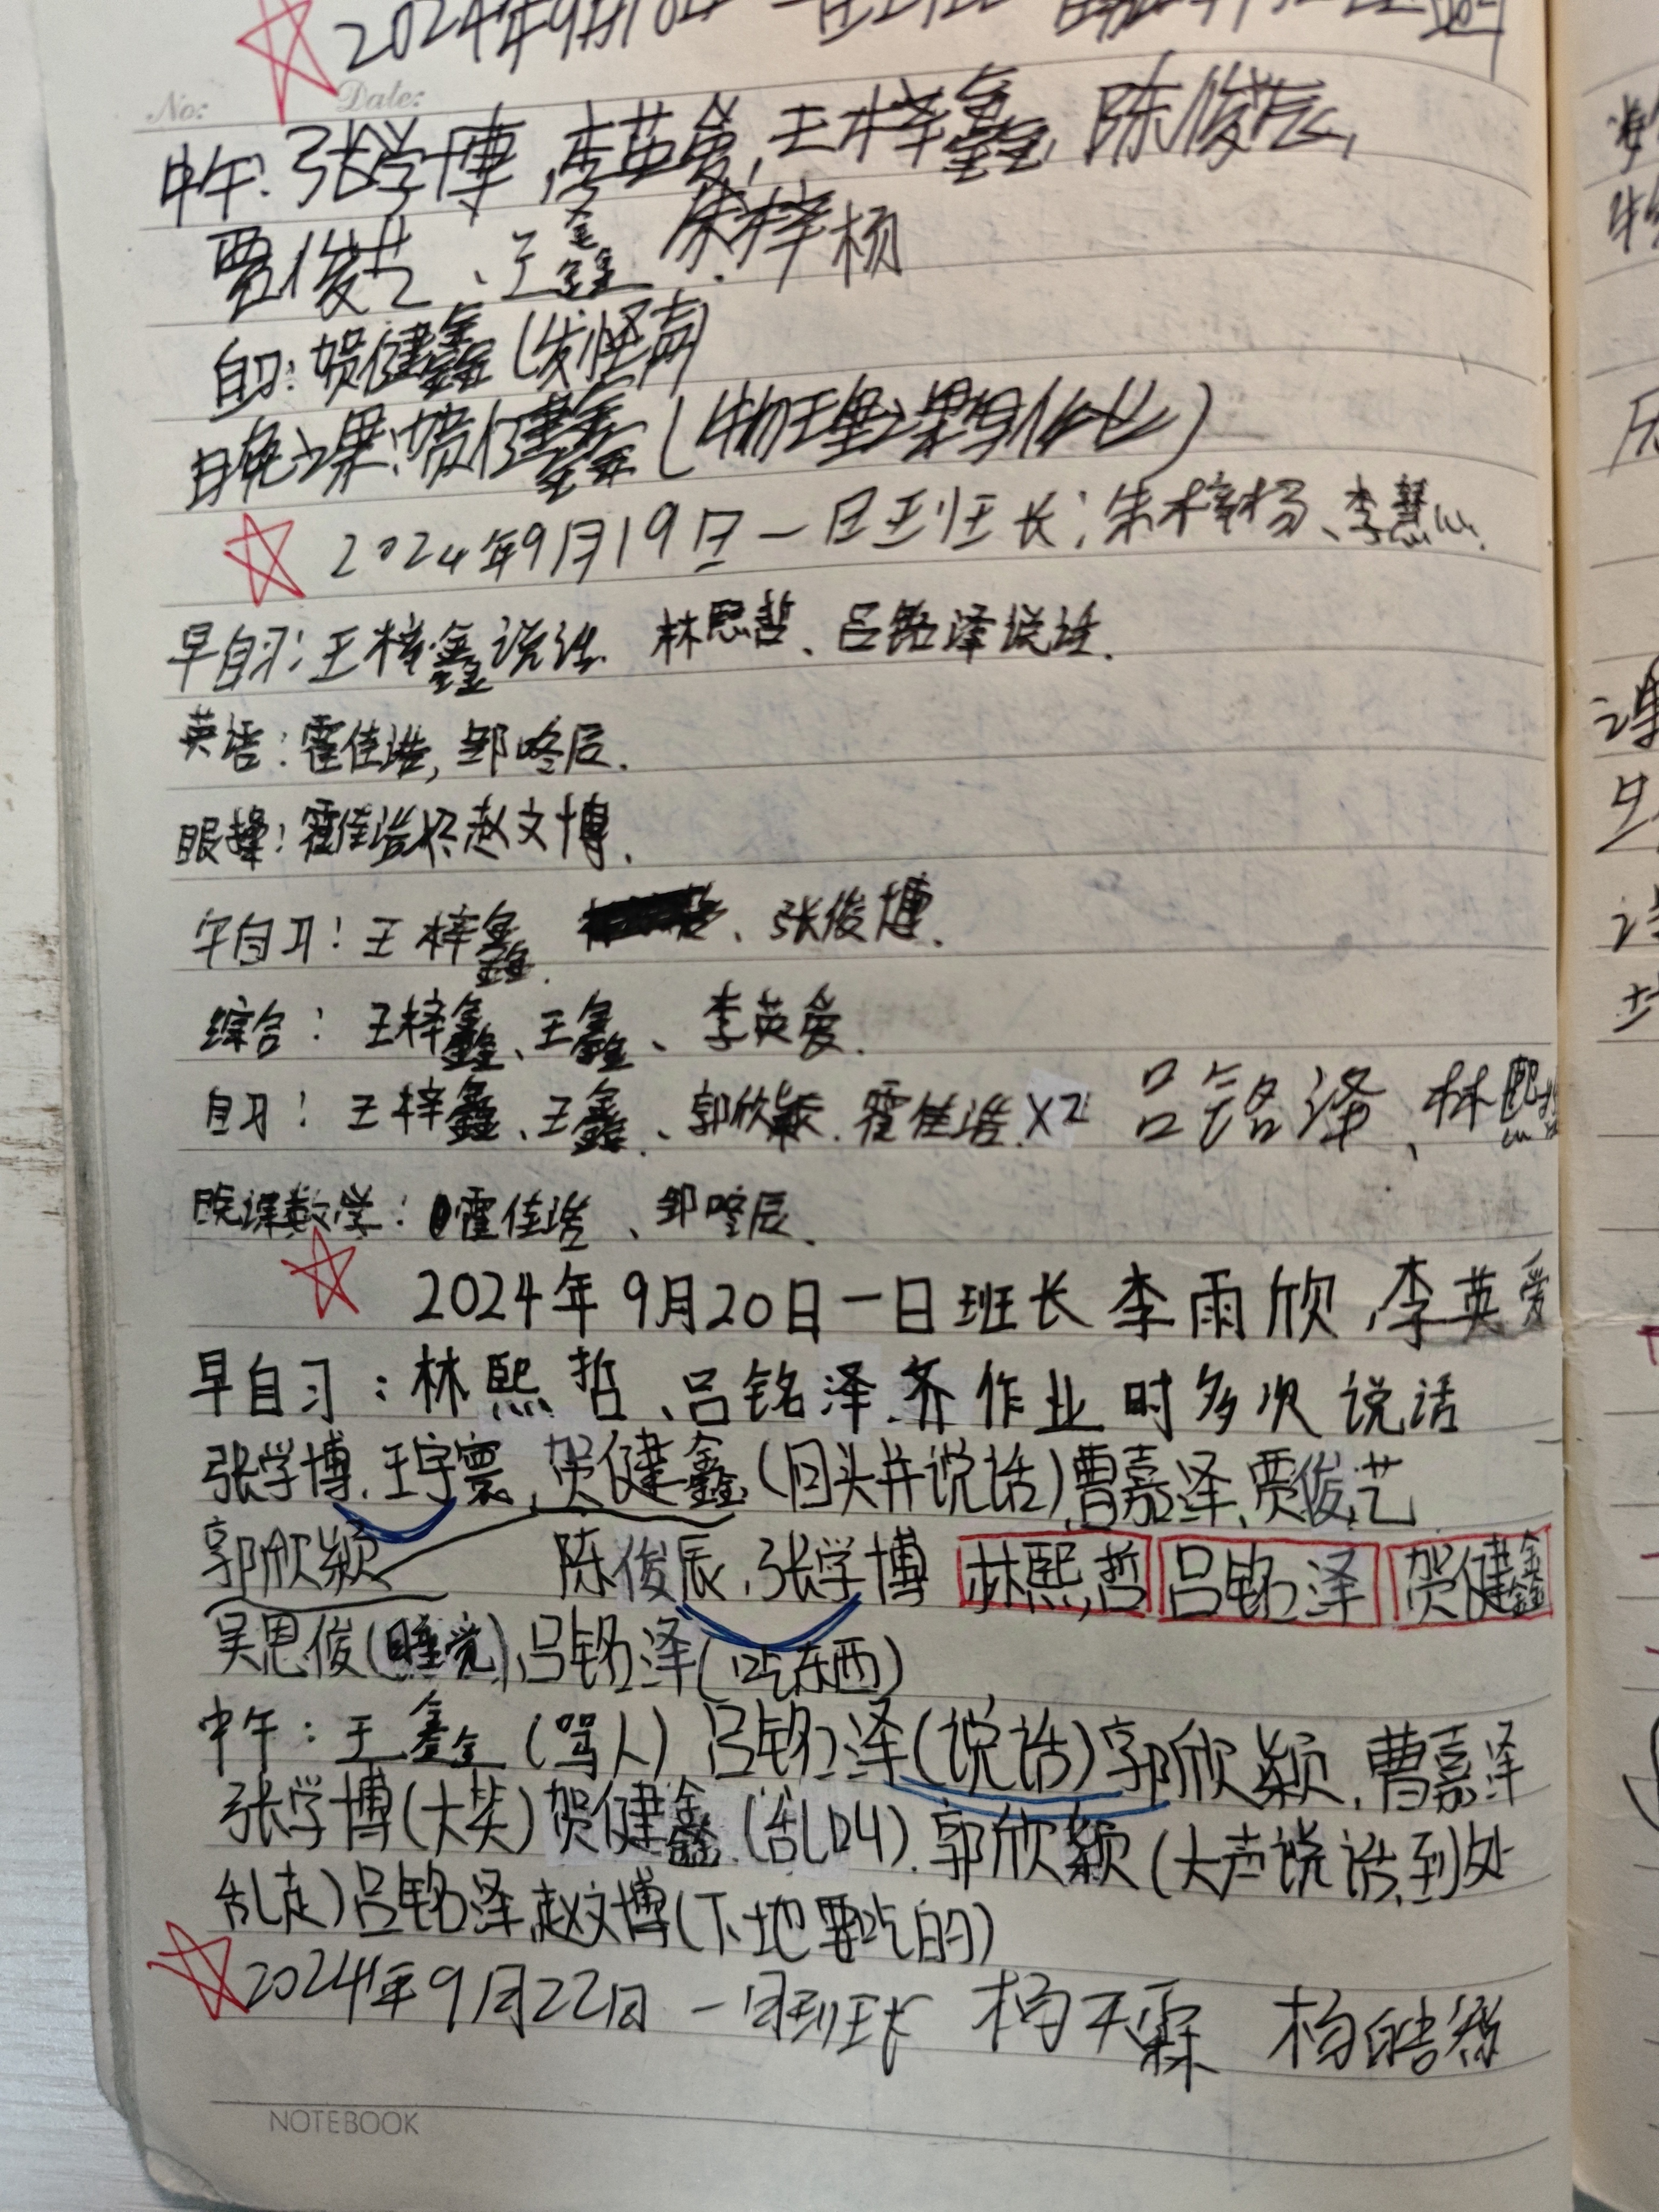 2024年9月18日一日班长
No: Date:
中午: 张学博,李英爱,王梓鑫,陈俊辰,
贾俊艺、王鑫.朱梓杨
自习:贺健鑫(发怪声)
晚课:贺健鑫(物理课写作业)
2024年9月19日一日班长:朱梓杨、李慧
早自习:王梓鑫说话 林熙哲、吕铭泽说话.
英语:霍佳浩,邹咚辰.
眼操:霍佳浩怀赵文博.
午自习:王梓鑫、张俊博.
综合:王梓鑫、王鑫、李英爱.
自习:王梓鑫、王鑫、郭欣颖.霍佳浩X2 吕铭泽、林熙哲
晚课数学:霍佳浩、邹咚辰.
2024年9月20日一日班长 李雨欣,李英爱
早自习:林熙哲、吕铭泽.齐作业时多次说话
张学博.王宇寰,贺健鑫(回头并说话)曹嘉泽、贾俊艺
郭欣颖 陈俊辰,张学博 林熙哲 吕铭泽 贺健鑫
吴思俊(睡觉),吕铭泽(吃东西)
中午:王鑫(骂人)吕铭泽(说话)郭欣颖,曹嘉泽
张学博(大笑)贺健鑫.(乱叫).郭欣颖(大声说话,到处
乱走)吕铭泽,赵文博(下地要吃的)
2024年9月22日 一日班长 杨天霖 杨皓
NOTEBOOK